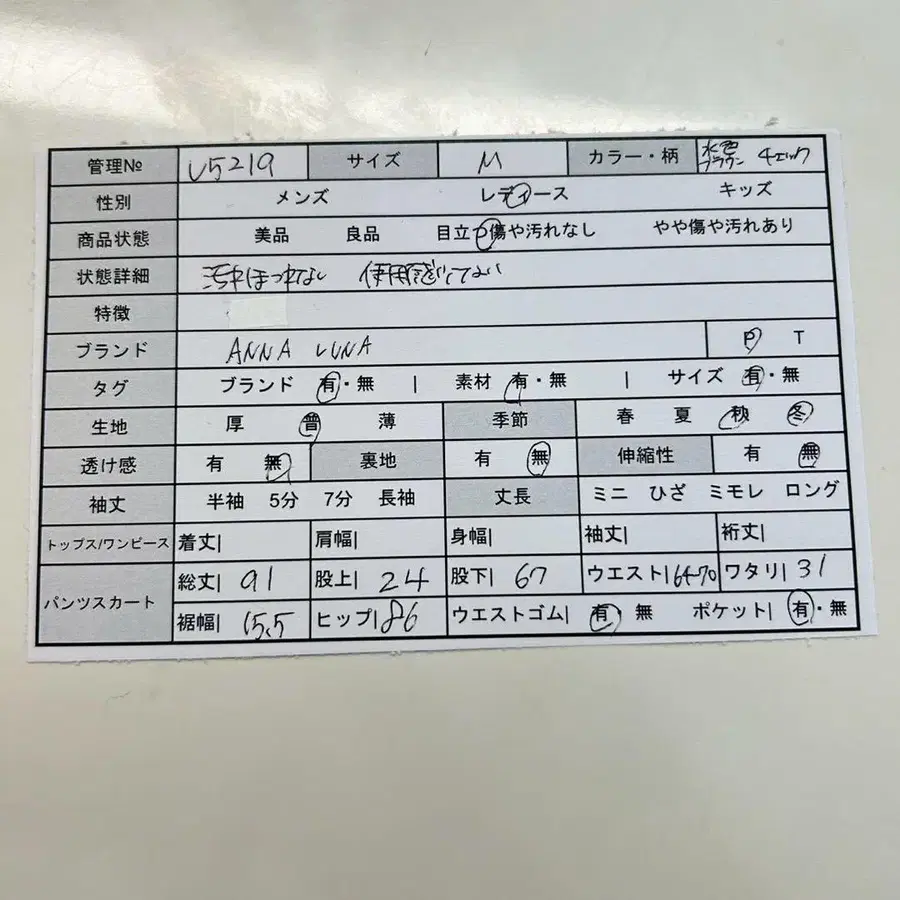 管理№ U5219 サイズ M カラー・柄 水色 ブラウン チェック
性別 メンズ レディース キッズ
商品状態 美品 良品 目立つ傷や汚れなし やや傷や汚れあり
状態詳細 汚れほつれなし 使用感
特徴
ブランド ANNA LUNA P T
タグ ブランド 有・無 | 素材 有・無 | サイズ 有・無
生地 厚 普 薄 季節 春 夏 秋 冬
透け感 有 無 裏地 有 無 伸縮性 有 無
袖丈 半袖 5分 7分 長袖 丈長 ミニ ひざ ミモレ ロング
トップス/ワンピース 着丈| 肩幅| 身幅| 袖丈| 裄丈|
パンツスカート 総丈| 91 股上| 24 股下| 67 ウエスト| 64-70 ワタリ| 31
裾幅| 15.5 ヒップ| 86 ウエストゴム| 有 無 ポケット| 有・無